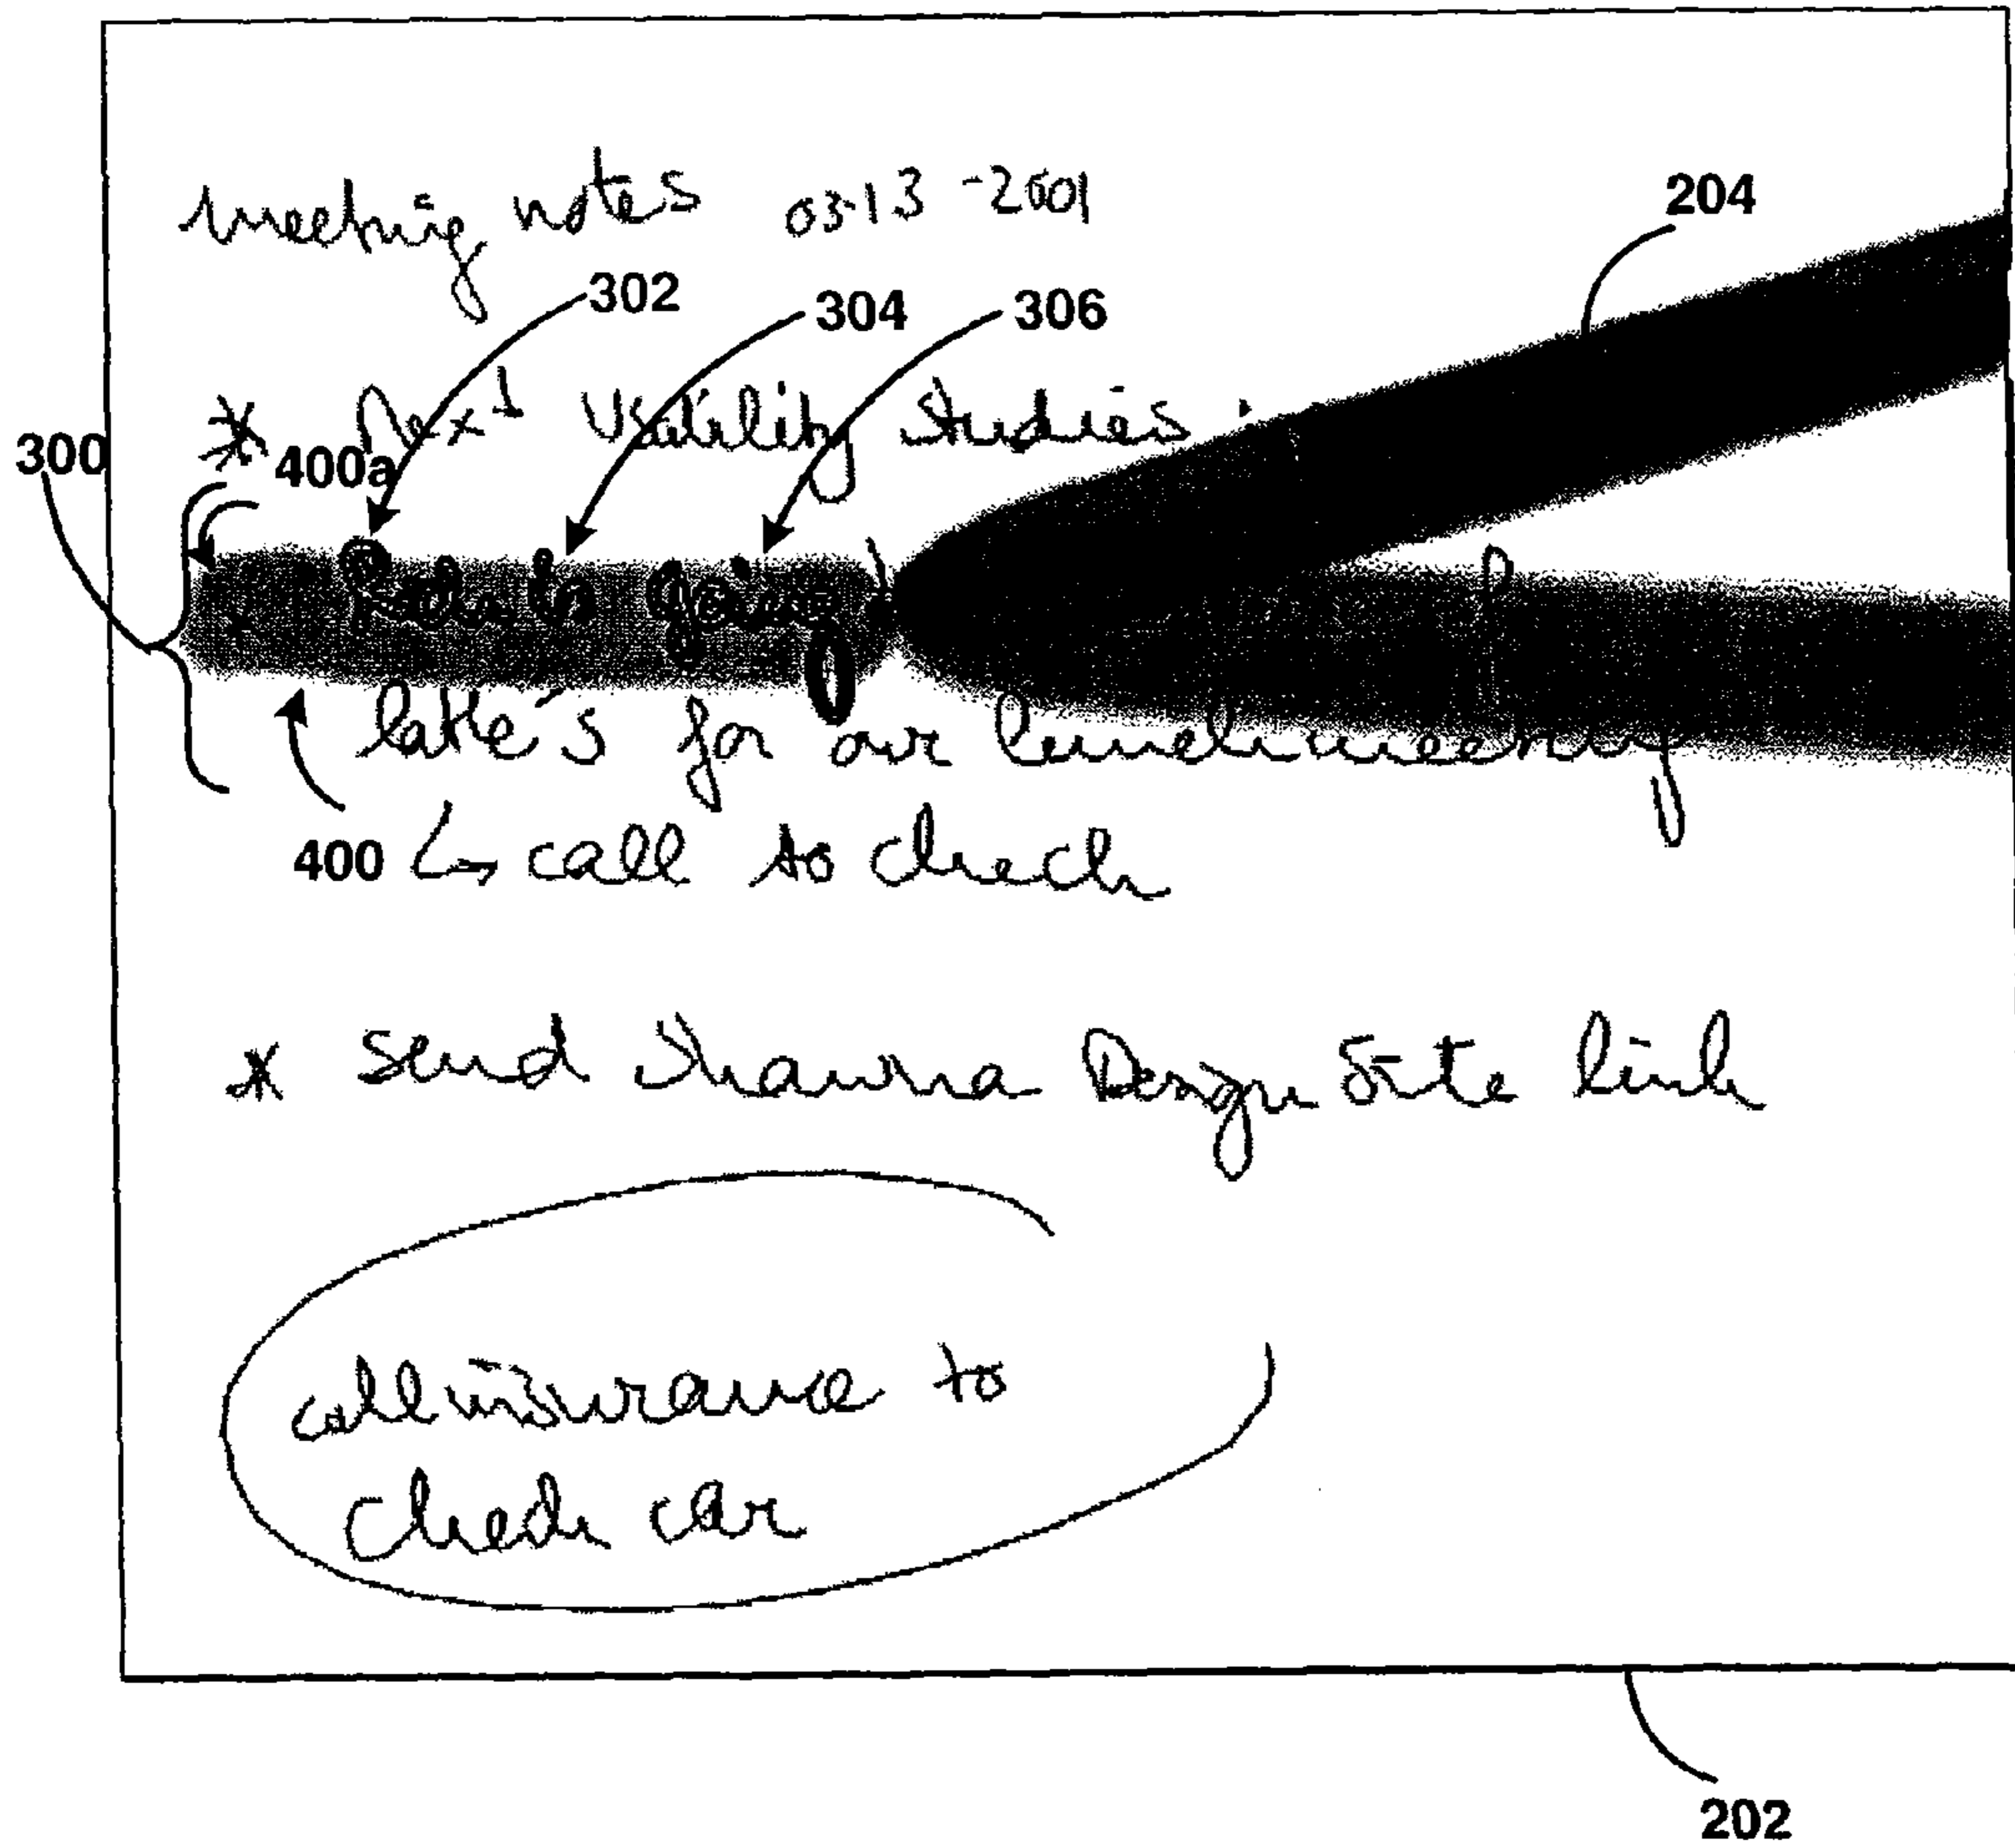 meeting notes 03-13-2001
204
302
304
306
* Next Usability Studies:
300
400a
to going
latte's for our lunchmeeting
400 ↳ call to check
* send Shawna Design Site link
call insurance to
check car
202